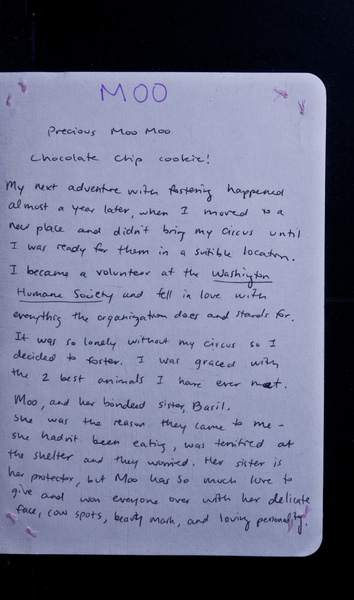 MOO
Precious Moo Moo
Chocolate Chip cookie!
My next adventure with fostering happened
almost a year later, when I moved to a
new place and didn't bring my circus until
I was ready for them in a sutible location.
I became a volunteer at the Washington
Humane Society and fell in love with
everythig the organization does and stands for.
It was so lonely without my circus so I
decided to foster. I was graced with
the 2 best animals I have ever met.
Moo, and her bonded sister, Basil.
She was the reason they came to me -
she hadn't been eating, was terrified at
the shelter and they worried. Her sister is
her protector, but Moo has so much love to
give and won everyone over with her delicate
face, cow spots, beauty mark, and loving personality.